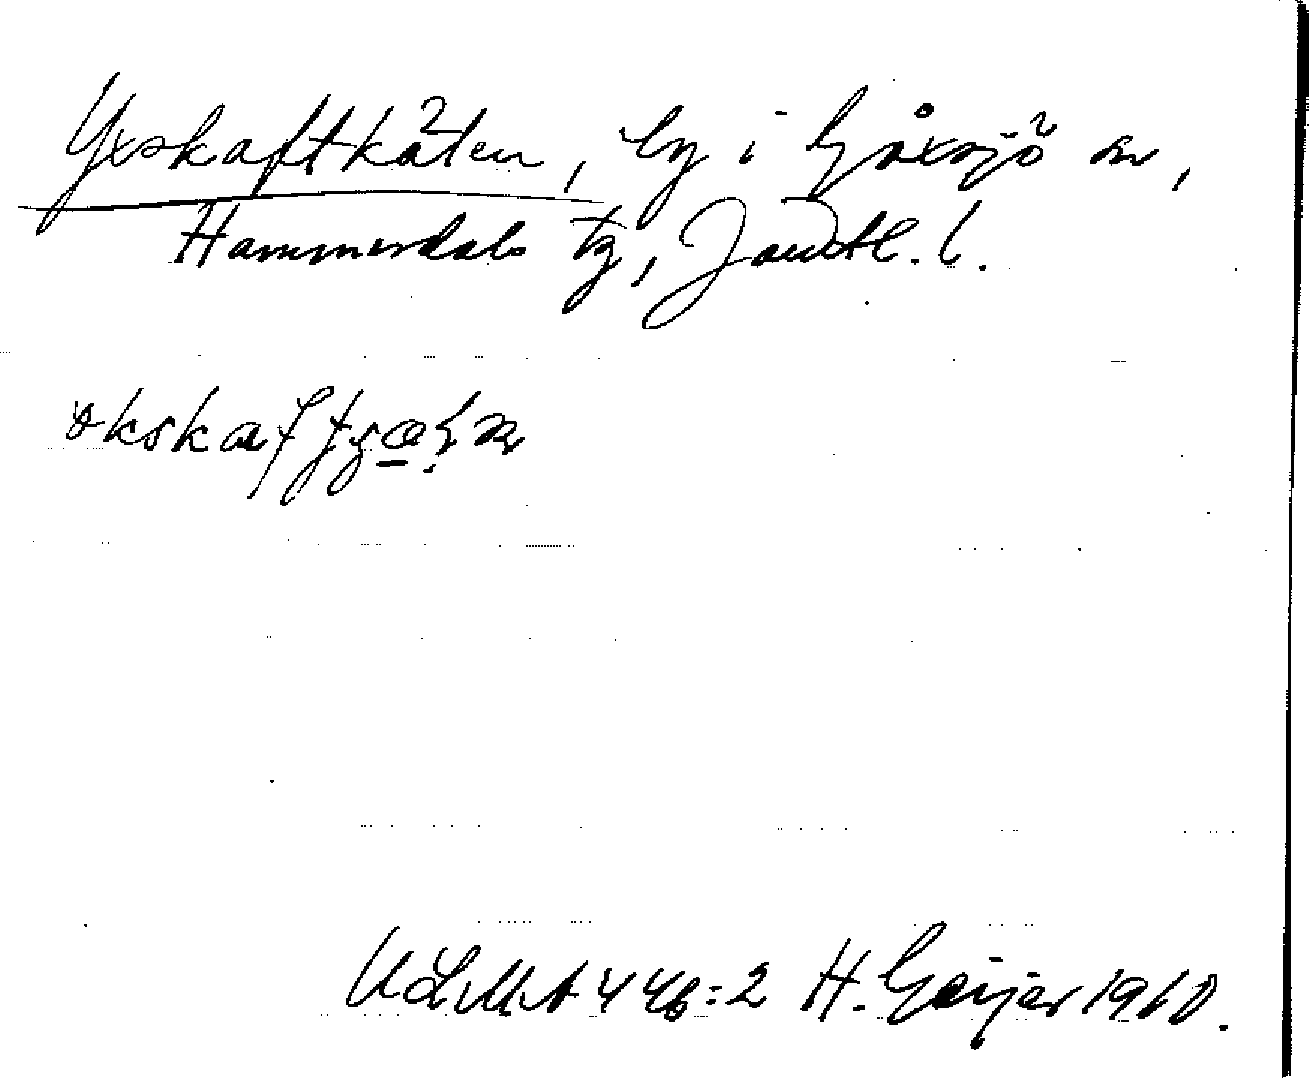 Yxskaftkåten, by i Gåxsjö sn,
Hammerdals tg, Jämtl. l.
ULMA 446:2 H. Geijer 1910.